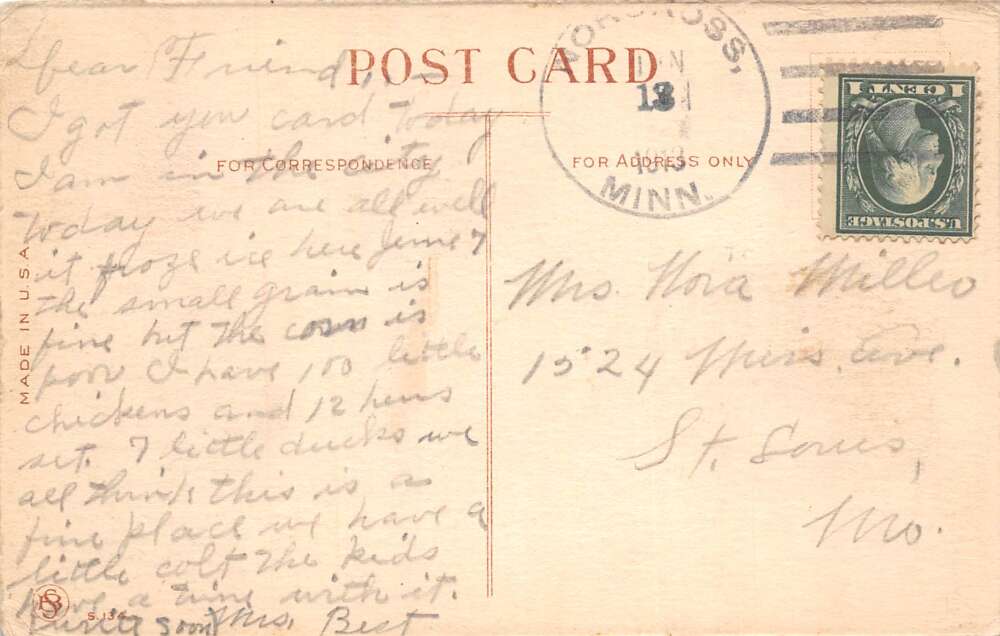 POST CARD
FOR CORRESPONDENCE
FOR ADDRESS ONLY
MADE IN U.S.A.
Dear Friend :-
I got you card today
I am in the city
today we are all well
it froze ice here June 7
the small grain is
fine but the corn is
poor I have 100 little
chickens and 12 hens
set. 7 little ducks we
all think this is a
fine place we have a
little colt the kids
have a time with it.
write soon Mrs. Best
S.134
NORCROSS,
JUN
13
1913
MINN.
1 CENT 1
U.S. POSTAGE
Mrs Nora Miller
1524 Ave.
St. Louis,
Mo.